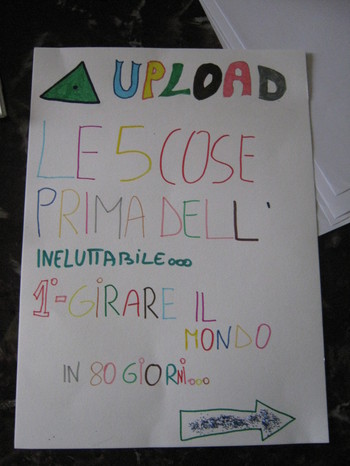 UPLOAD
LE 5 COSE
PRIMA DELL'
INELUTTABILE...
1°-GIRARE IL
MONDO
IN 80 GIORNI...